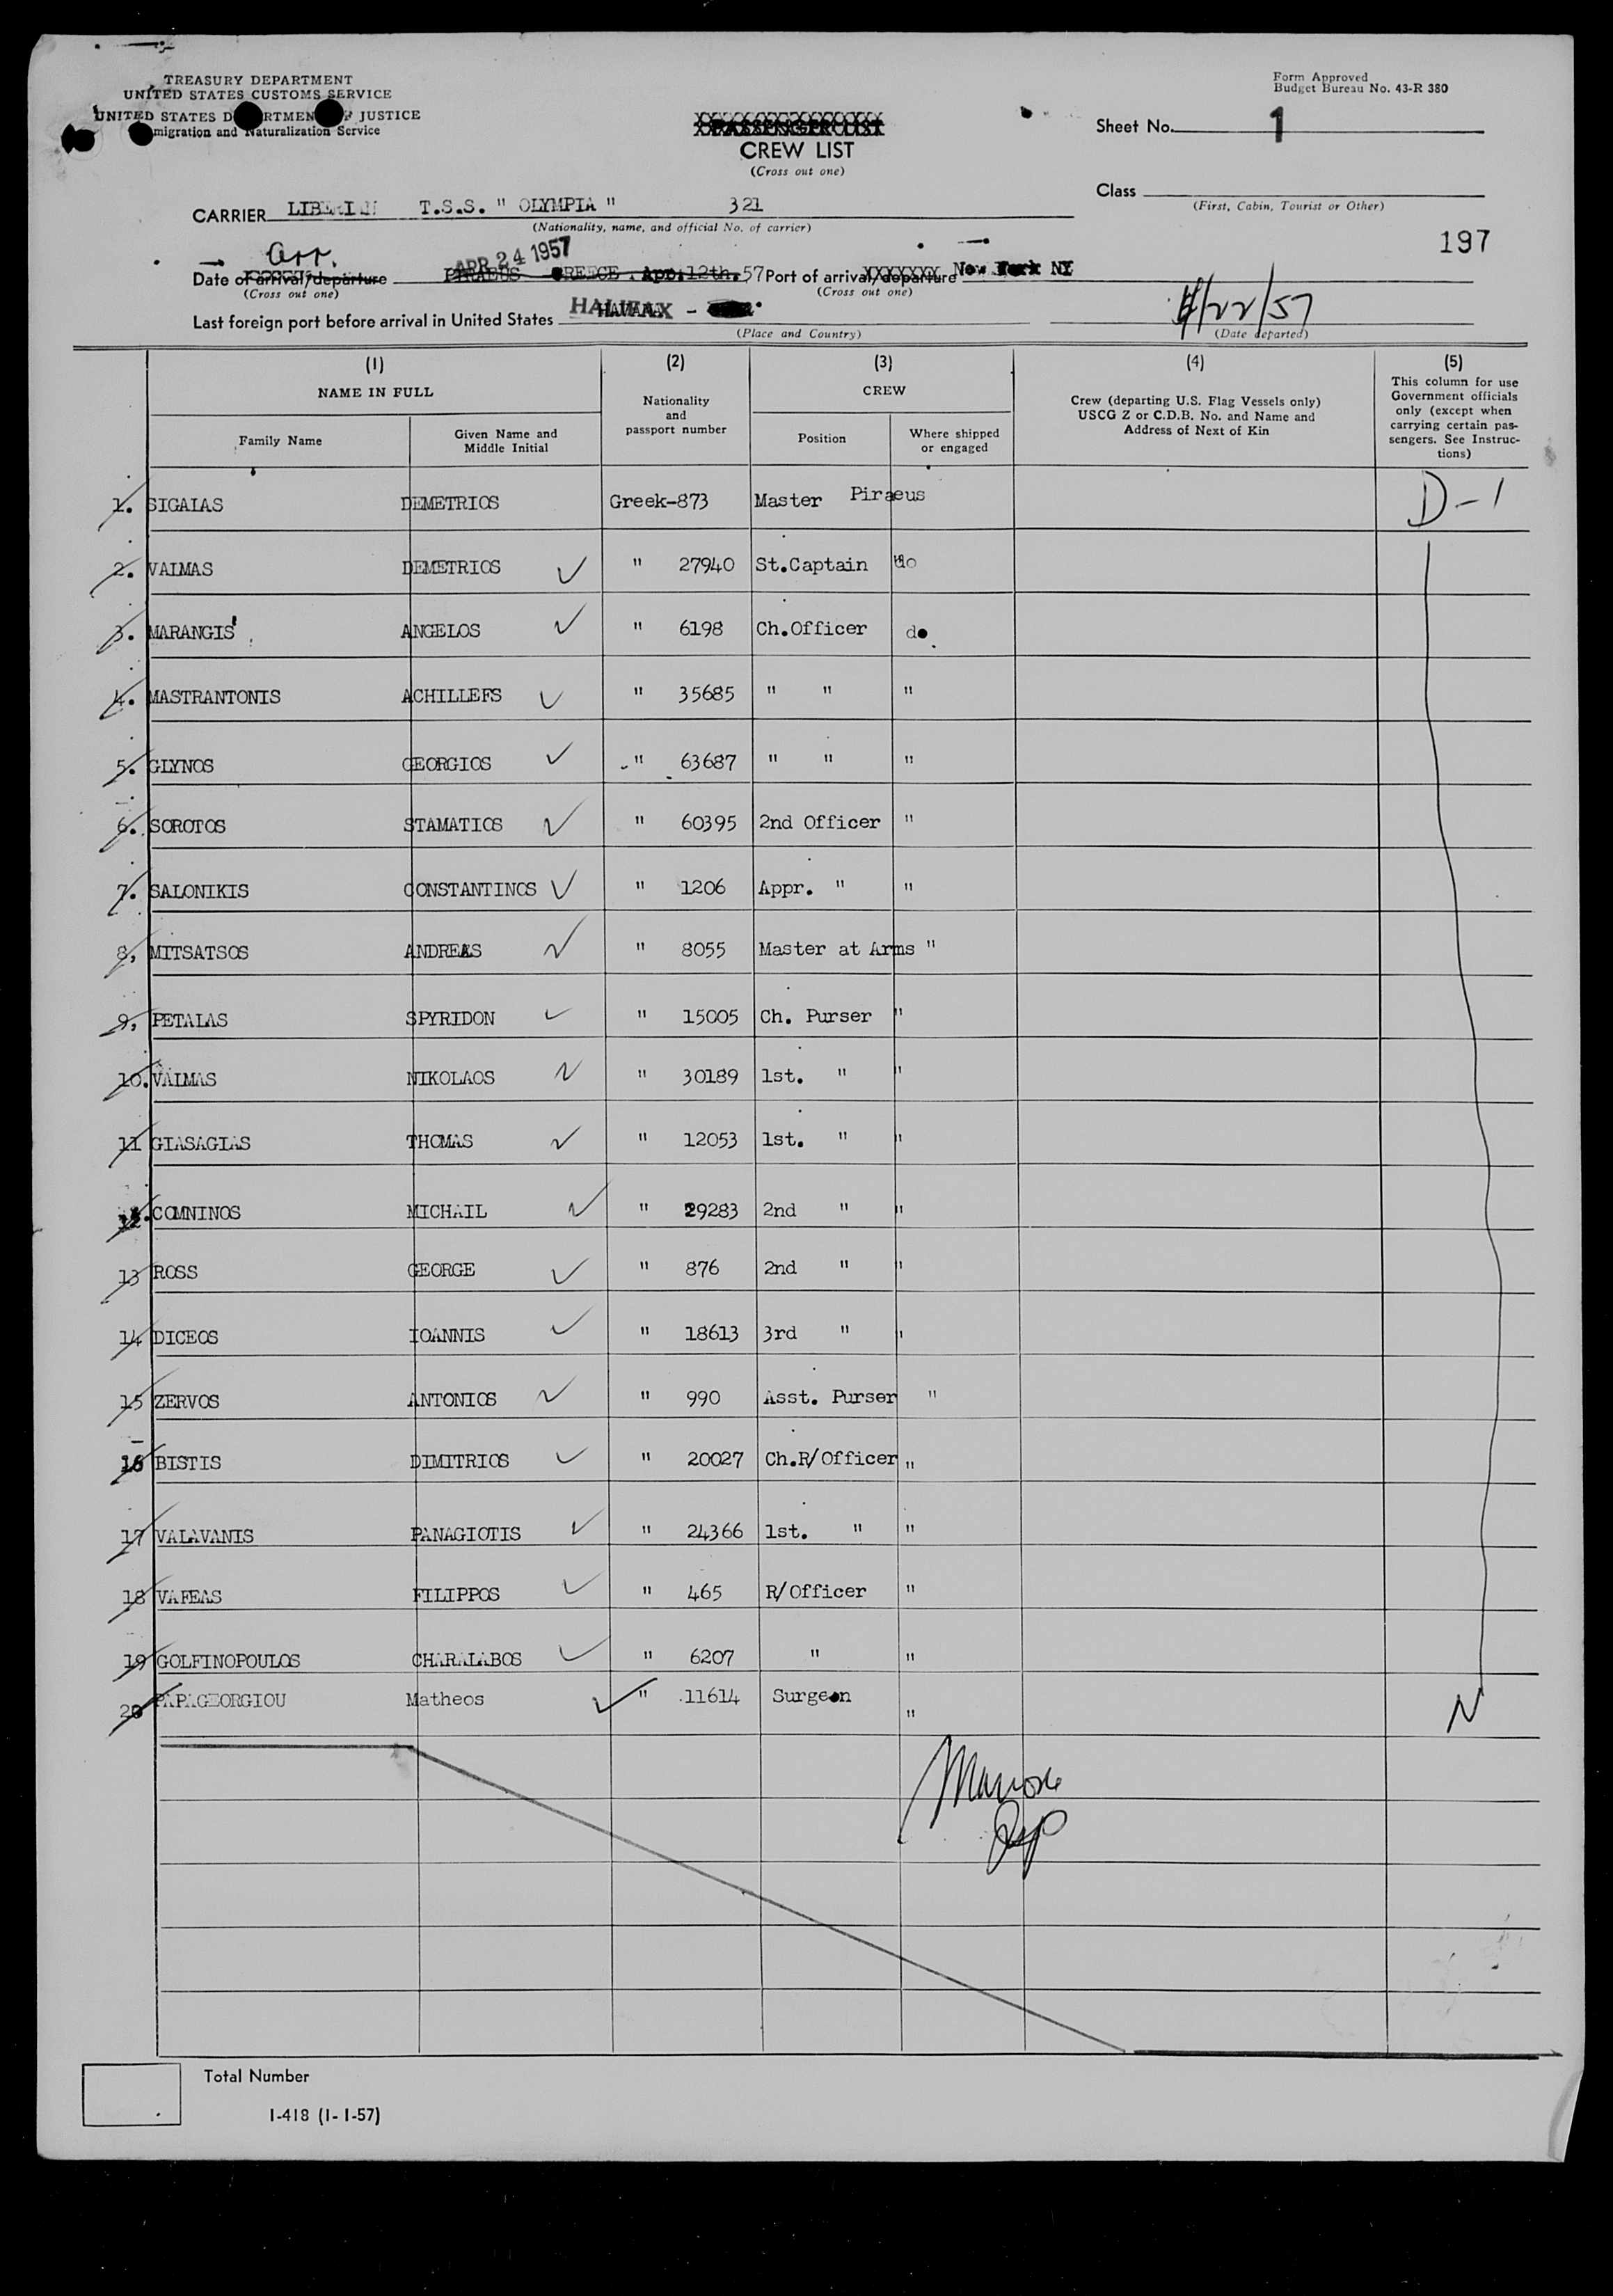 TREASURY DEPARTMENT
UNITED STATES CUSTOMS SERVICE
UNITED STATES D RTMEN F JUSTICE
migration and Naturalization Service
Form Approved
Budget Bureau No. 43-R 380
PASSENGER LIST
CREW LIST
(Cross out one)
Sheet No. 1
Class
(First, Cabin, Tourist or Other)
CARRIER LIBERIAN T.S.S. " OLYMPIA " 321
(Nationality, name, and official No. of carrier)
197
arr.
APR 24 1957
Date of arrival/departure PIRAEUS GREECE. Apr. 12th. 57 Port of arrival/departure New York NY
(Cross out one) (Cross out one)
Last foreign port before arrival in United States HALIFAX - 4/22/57
(Place and Country) (Date departed)
(1) (2) (3) (4) (5)
NAME IN FULL
Nationality and passport number
CREW
Crew (departing U.S. Flag Vessels only) USCG Z or C.D.B. No. and Name and Address of Next of Kin
This column for use Government officials only (except when carrying certain passengers. See Instructions)
Family Name Given Name and Middle Initial Position Where shipped or engaged
1. SIGALAS DEMETRIOS Greek-873 Master Piraeus D-1
2. VALMAS DEMETRIOS " 27940 St.Captain do
3. MARANGIS ANGELOS " 6198 Ch.Officer do
4. MASTRANTONIS ACHILLEFS " 35685 " " "
5. GLYNOS GEORGIOS " 63687 " " "
6. SOROTOS STAMATIOS " 60395 2nd Officer "
7. SALONIKIS CONSTANTINOS " 1206 Appr. " "
8, MITSATSOS ANDREAS " 8055 Master at Arms "
9, PETALAS SPYRIDON " 15005 Ch. Purser "
10. VALMAS NIKOLAOS " 30189 1st. " "
11 GIASAGIAS THOMAS " 12053 1st. " "
12. COMNINOS MICHAIL " 29283 2nd " "
13 ROSS GEORGE " 876 2nd " "
14 DICEOS IOANNIS " 18613 3rd " "
15 ZERVOS ANTONIOS " 990 Asst. Purser "
16 BISTIS DIMITRIOS " 20027 Ch.R/Officer "
17 VALAVANIS PANAGIOTIS " 24366 1st. " "
18 VAFEAS FILIPPOS " 465 R/Officer "
19 GOLFINOPOULOS CHARALABOS " 6207 " "
20 PAPAGEORGIOU Matheos " 11614 Surgeon " N
Total Number
I-418 (1-1-57)